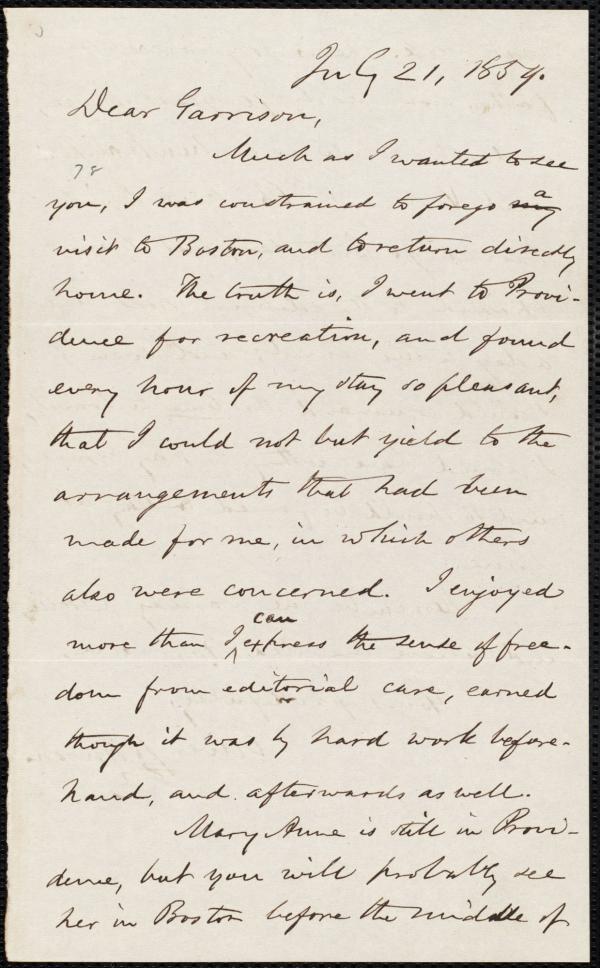 July 21, 1859.
Dear Garrison,
Much as I wanted to see
78
you, I was constrained to forego my a
visit to Boston, and to return directly
home. The truth is, I went to Provi-
dence for recreation, and found
every hour of my stay so pleasant,
that I could not but yield to the
arrangements that had been
made for me, in which others
also were concerned. I enjoyed
more than I can express the sense of free-
dom from editorial care, earned
though it was by hard work before-
hand, and afterwards as well.
Mary Anne is still in Provi-
dence, but you will probably see
her in Boston before the middle of